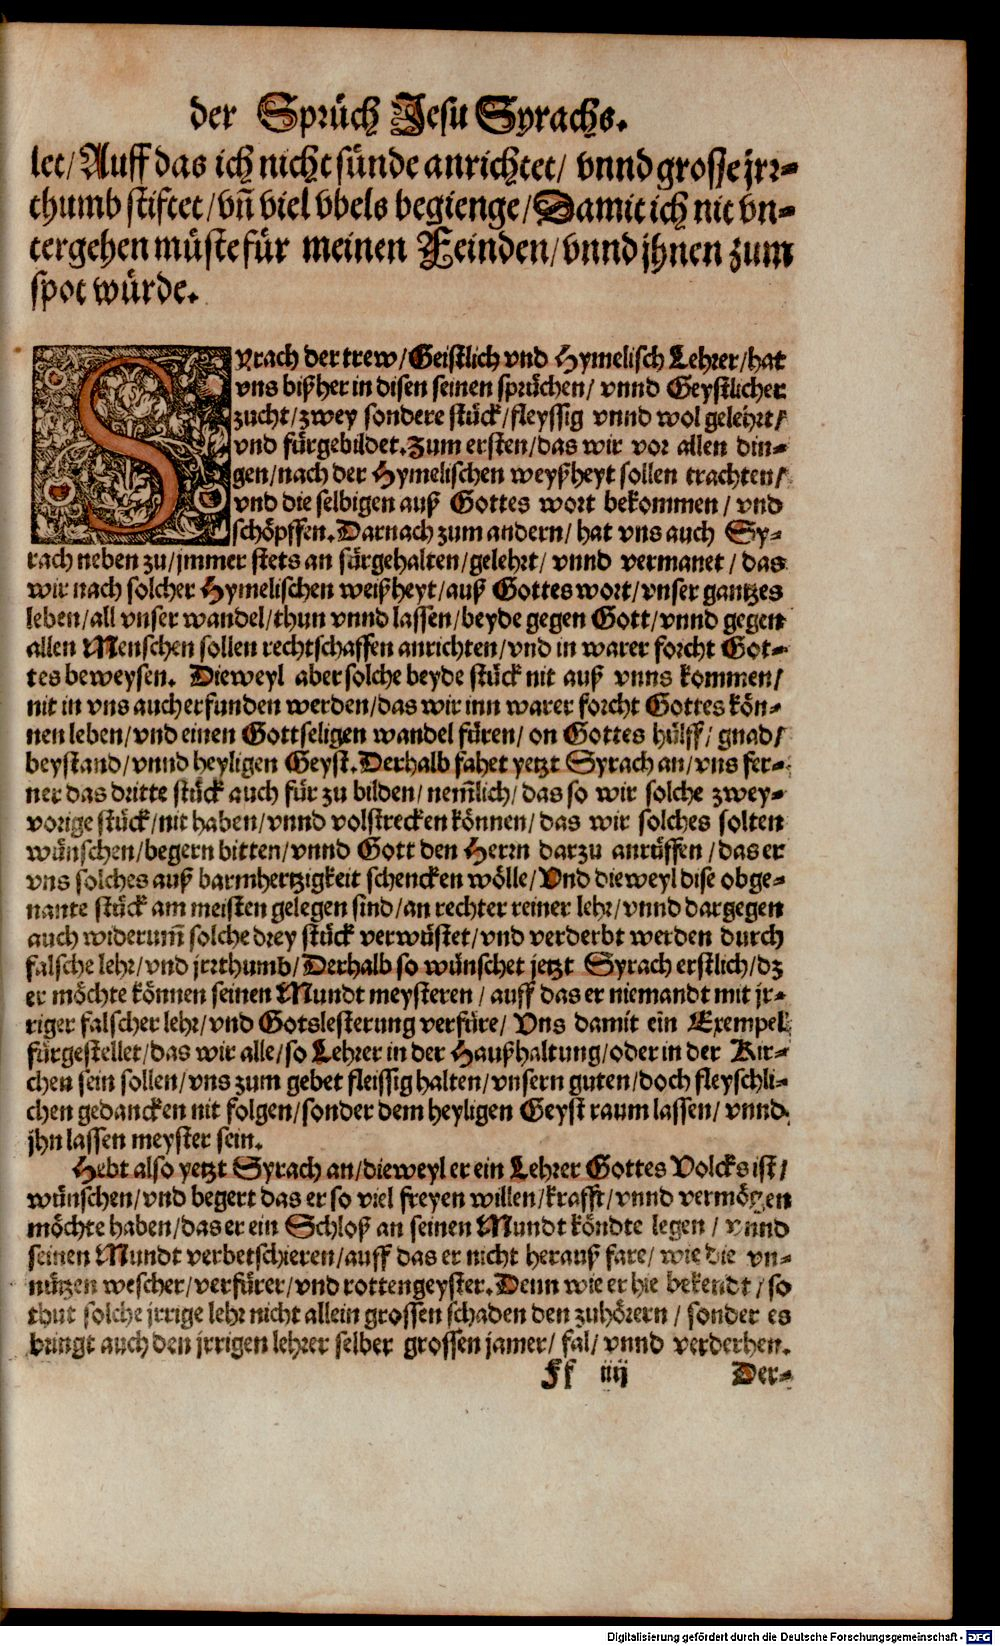 der Sprüch Jesu Syrachs.
let/ Auff das ich nicht sünde anrichtet/ vnnd grosse jrr⸗
thumb stiftet/ vñ viel vbels begienge/ Damit ich nit vn⸗
tergehen müste für meinen Feinden/ vnnd jhnen zum
spot würde.
SYrach der trew/ Geistlich vnd Hymelisch Lehrer/ hat
vns bißher in disen seinen sprüchen/ vnnd Geystlicher
zucht/ zwey sondere stück/ fleyssig vnnd wol gelehrt/
vnd fürgebildet. Zum ersten/ das wir vor allen din⸗
gen/ nach der Hymelischen weyßheyt sollen trachten/
vnd die selbigen auß Gottes wort bekommen/ vnd
schöpffen. Darnach zum andern/ hat vns auch Sy⸗
rach neben zu/ jmmer stets an fürgehalten/ gelehrt/ vnnd vermanet/ das
wir nach solcher Hymelischen weißheyt/ auß Gottes wort/ vnser gantzes
leben/ all vnser wandel/ thun vnnd lassen/ beyde gegen Gott/ vnnd gegen
allen Menschen sollen rechtschaffen anrichten/ vnd in warer forcht Got⸗
tes beweysen. Dieweyl aber solche beyde stück nit auß vnns kommen/
nit in vns auch erfunden werden/ das wir inn warer forcht Gottes kön⸗
nen leben/ vnd einen Gottseligen wandel füren/ on Gottes hülff/ gnad/
beystand/ vnnd heyligen Geyst. Derhalb fahet yetzt Syrach an/ vns fer⸗
ner das dritte stück auch für zu bilden/ nem̃lich/ das so wir solche zwey⸗
vorige stück/ nit haben/ vnnd volstrecken können/ das wir solches solten
wünschen/ begern bitten/ vnnd Gott den Herrn darzu anrüffen/ das er
vns solches auß barmhertzigkeit schencken wölle/ Vnd dieweyl dise obge⸗
nante stück am meisten gelegen sind/ an rechter reiner lehr/ vnnd dargegen
auch widerum̃ solche drey stück verwüstet/ vnd verderbt werden durch
falsche lehr/ vnd jrrthumb/ Derhalb so wünschet jetzt Syrach erstlich/ dz
er möchte können seinen Mundt meysteren/ auff das er niemandt mit jr⸗
riger falscher lehr/ vnd Gotslesterung verfüre/ Vns damit ein Exempel
fürgestellet/ das wir alle/ so Lehrer in der Haußhaltung/ oder in der Kir⸗
chen sein sollen/ vns zum gebet fleissig halten/ vnsern guten/ doch fleyschli⸗
chen gedancken nit folgen/ sonder dem heyligen Geyst raum lassen/ vnnd
jhn lassen meyster sein.
Hebt also yetzt Syrach an/ dieweyl er ein Lehrer Gottes Volcks ist/
wünschen/ vnd begert das er so viel freyen willen/ krafft/ vnnd vermögen
möchte haben/ das er ein Schloß an seinen Mundt köndte legen/ vnnd
seinen Mundt verbetschieren/ auff das er nicht herauß fare/ wie die vn⸗
nützen wescher/ verfürer/ vnd rottengeyster. Denn wie er hie bekendt/ so
thut solche jrrige lehr nicht allein grossen schaden den zuhörern/ sonder es
bringt auch den jrrigen lehrer selber grossen jamer/ fal/ vnnd verderben.
Ff iiij Der⸗
Digitalisierung gefördert durch die Deutsche Forschungsgemeinschaft - DFG